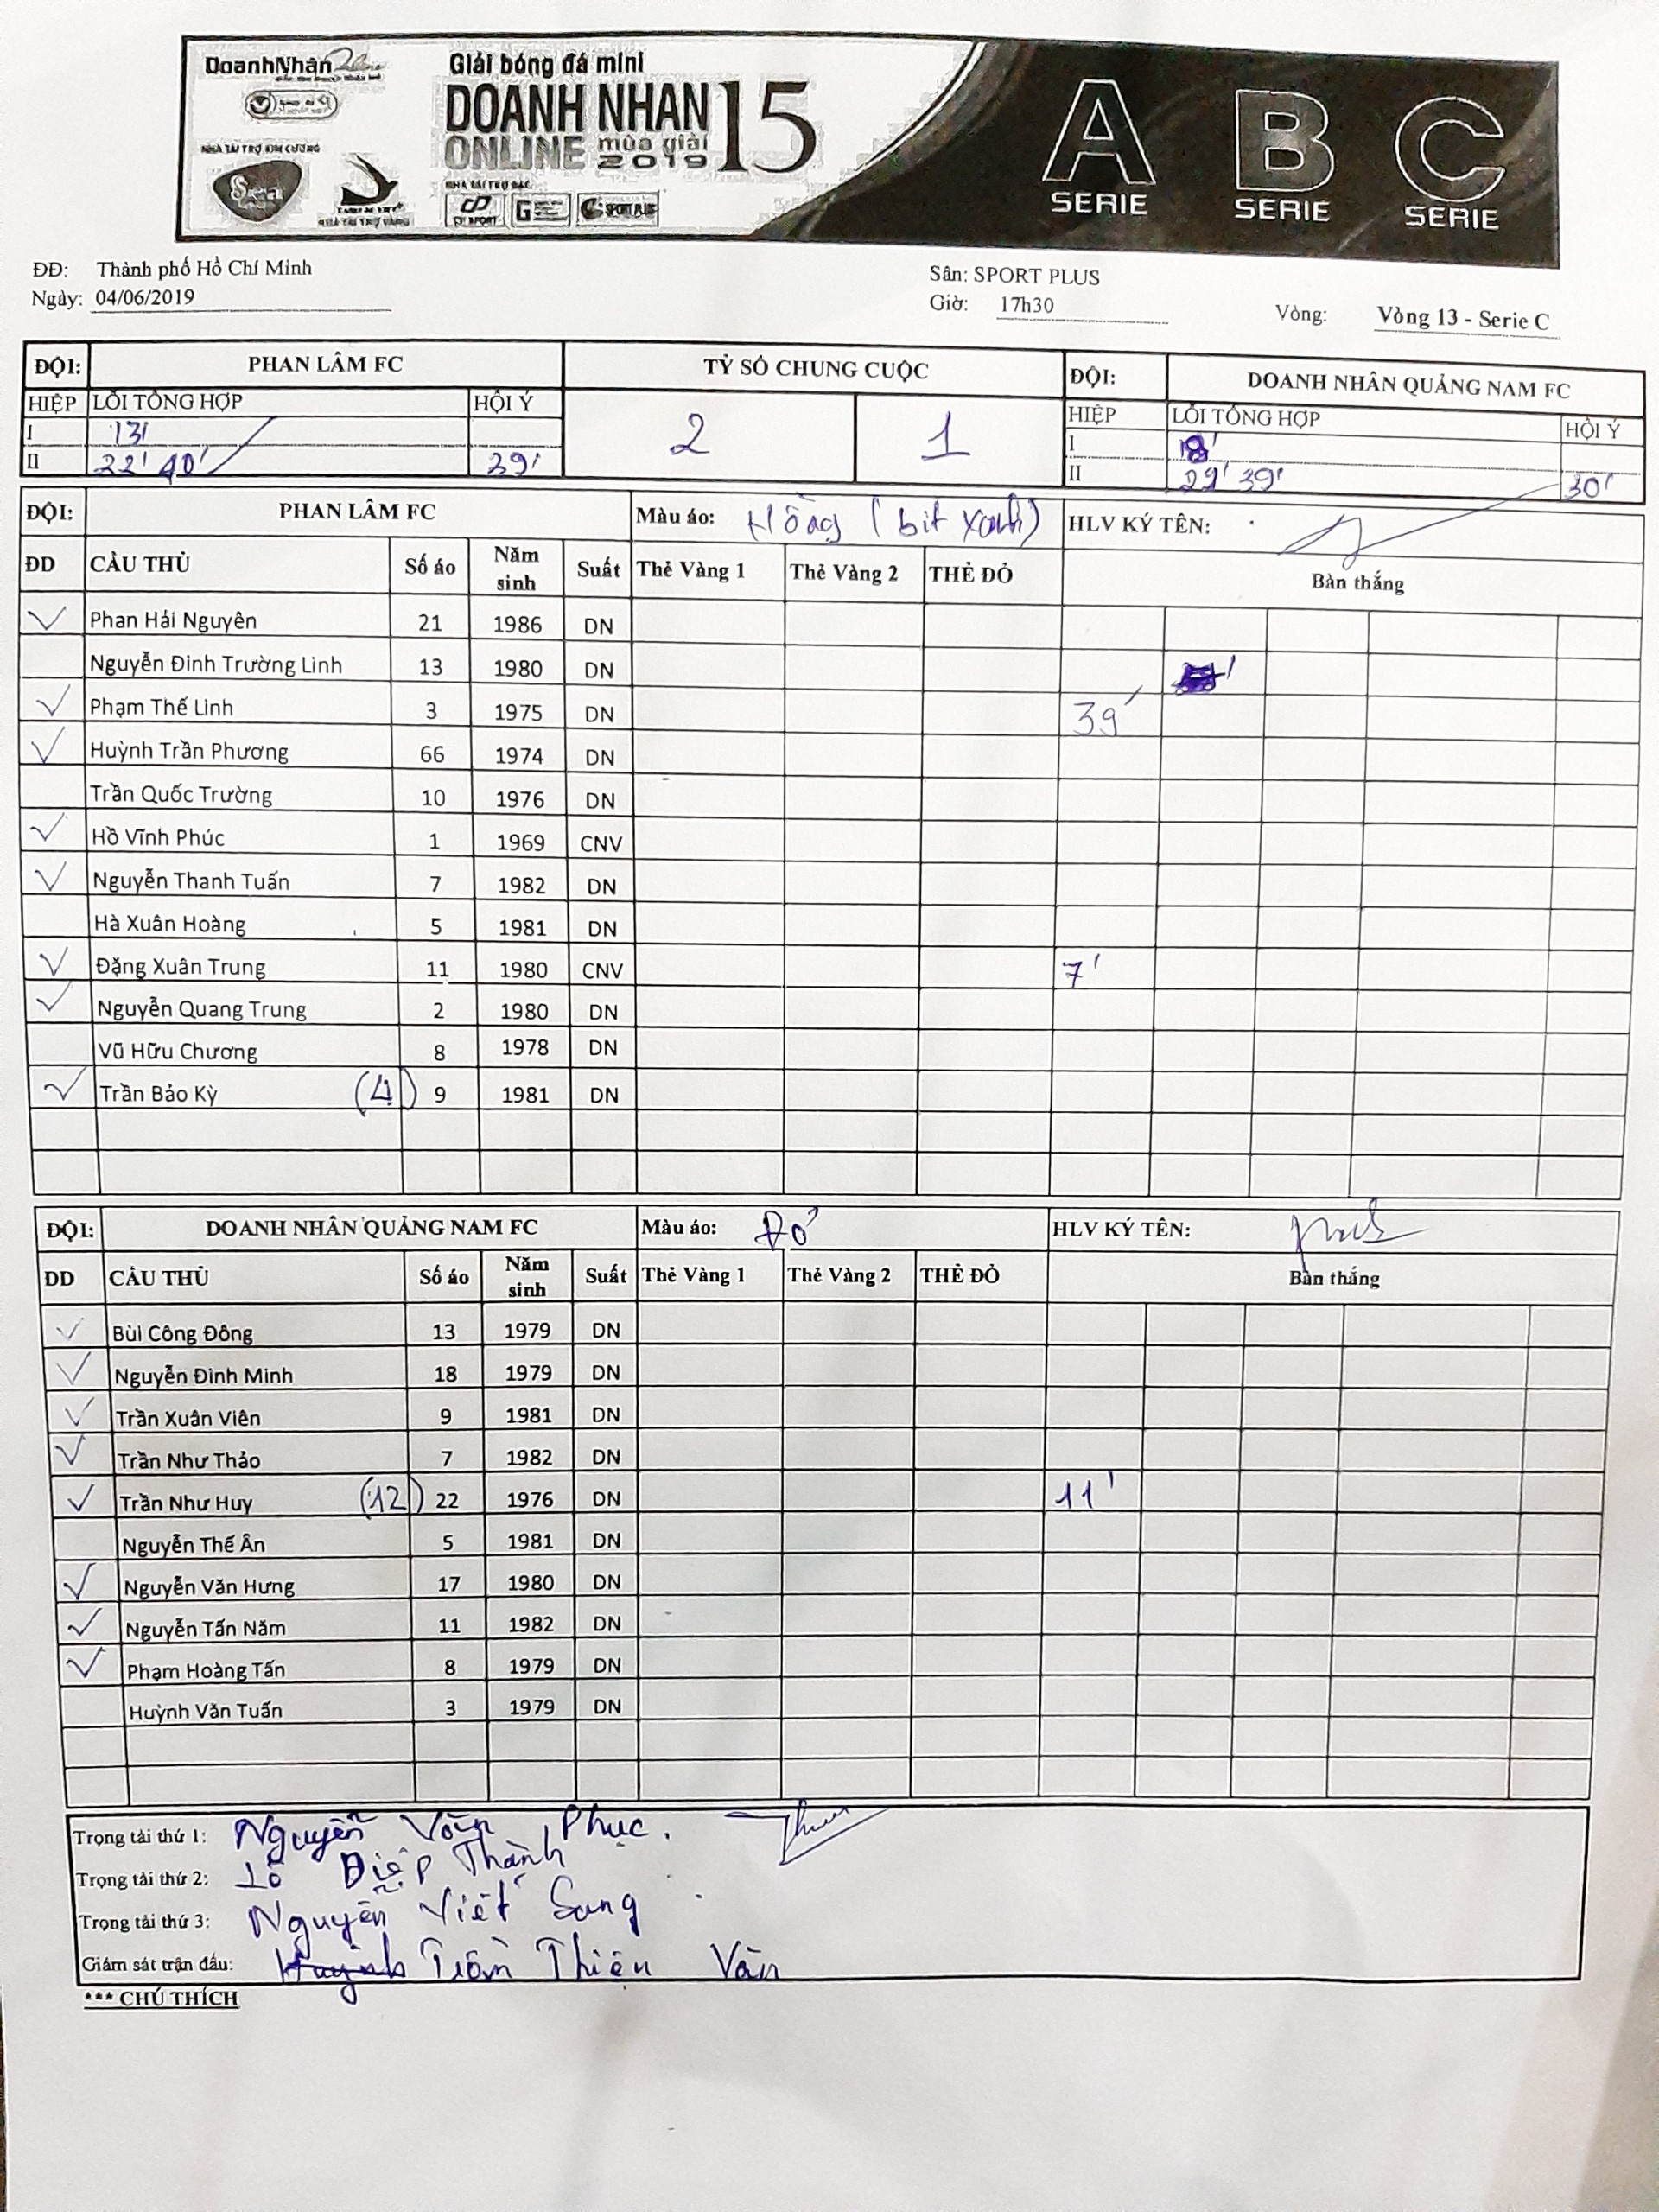 DoanhNhân
Giải bóng đá mini
DOANH NHAN 15
ONLINE mùa giải 2019
NHÀ TÀI TRỢ KIM CƯƠNG
NHÀ TÀI TRỢ BẠC
NHÀ TÀI TRỢ VÀNG
SPORT PLUS
A SERIE B SERIE C SERIE
ĐĐ: Thành phố Hồ Chí Minh Sân: SPORT PLUS
Ngày: 04/06/2019 Giờ: 17h30 Vòng: Vòng 13 - Serie C
ĐỘI: PHAN LÂM FC TỶ SỐ CHUNG CUỘC ĐỘI: DOANH NHÂN QUẢNG NAM FC
HIỆP LỖI TỔNG HỢP HỘI Ý 2 1 HIỆP LỖI TỔNG HỢP HỘI Ý
I 13' I 8'
II 22' 40' 39' II 29' 39' 30'
ĐỘI: PHAN LÂM FC Màu áo: Hồng (bit xanh) HLV KÝ TÊN:
ĐD CẦU THỦ Số áo Năm sinh Suất Thẻ Vàng 1 Thẻ Vàng 2 THẺ ĐỎ Bàn thắng
✓ Phan Hải Nguyên 21 1986 DN
Nguyễn Đình Trường Linh 13 1980 DN
✓ Phạm Thế Linh 3 1975 DN 39'
✓ Huỳnh Trần Phương 66 1974 DN
Trần Quốc Trường 10 1976 DN
✓ Hồ Vĩnh Phúc 1 1969 CNV
✓ Nguyễn Thanh Tuấn 7 1982 DN
Hà Xuân Hoàng 5 1981 DN
✓ Đặng Xuân Trung 11 1980 CNV 7'
✓ Nguyễn Quang Trung 2 1980 DN
Vũ Hữu Chương 8 1978 DN
✓ Trần Bảo Kỳ (4) 9 1981 DN
ĐỘI: DOANH NHÂN QUẢNG NAM FC Màu áo: Đỏ HLV KÝ TÊN:
DD CẦU THỦ Số áo Năm sinh Suất Thẻ Vàng 1 Thẻ Vàng 2 THẺ ĐỎ Bàn thắng
✓ Bùi Công Đông 13 1979 DN
✓ Nguyễn Đình Minh 18 1979 DN
✓ Trần Xuân Viên 9 1981 DN
✓ Trần Như Thảo 7 1982 DN
✓ Trần Như Huy (12) 22 1976 DN 11'
Nguyễn Thế Ân 5 1981 DN
✓ Nguyễn Văn Hưng 17 1980 DN
✓ Nguyễn Tấn Năm 11 1982 DN
✓ Phạm Hoàng Tấn 8 1979 DN
Huỳnh Văn Tuấn 3 1979 DN
Trọng tài thứ 1: Nguyễn Văn Phục.
Trọng tài thứ 2: Lê Diệp Thành
Trọng tài thứ 3: Nguyễn Viết Sang
Giám sát trận đấu: Huỳnh Trần Thiện Văn
*** CHÚ THÍCH